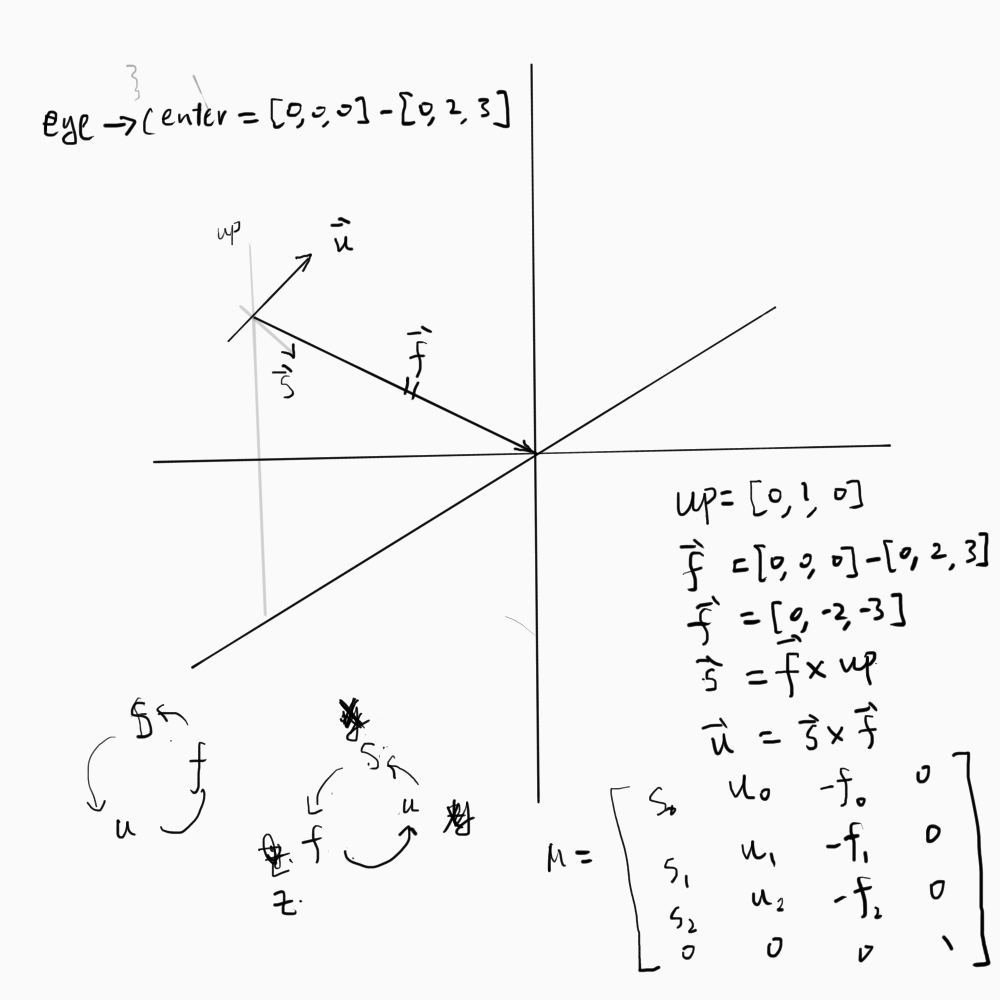 eye → center = [0, 0, 0] - [0, 2, 3]
up
u⃗
f⃗
s⃗
up = [0, 1, 0]
f⃗ = [0, 0, 0] - [0, 2, 3]
f⃗ = [0, -2, -3]
s⃗ = f⃗ × up
u⃗ = s⃗ × f⃗
f
u
s
u
f
z.
M =
s₀ u₀ -f₀ 0
s₁ u₁ -f₁ 0
s₂ u₂ -f₂ 0
0 0 0 1